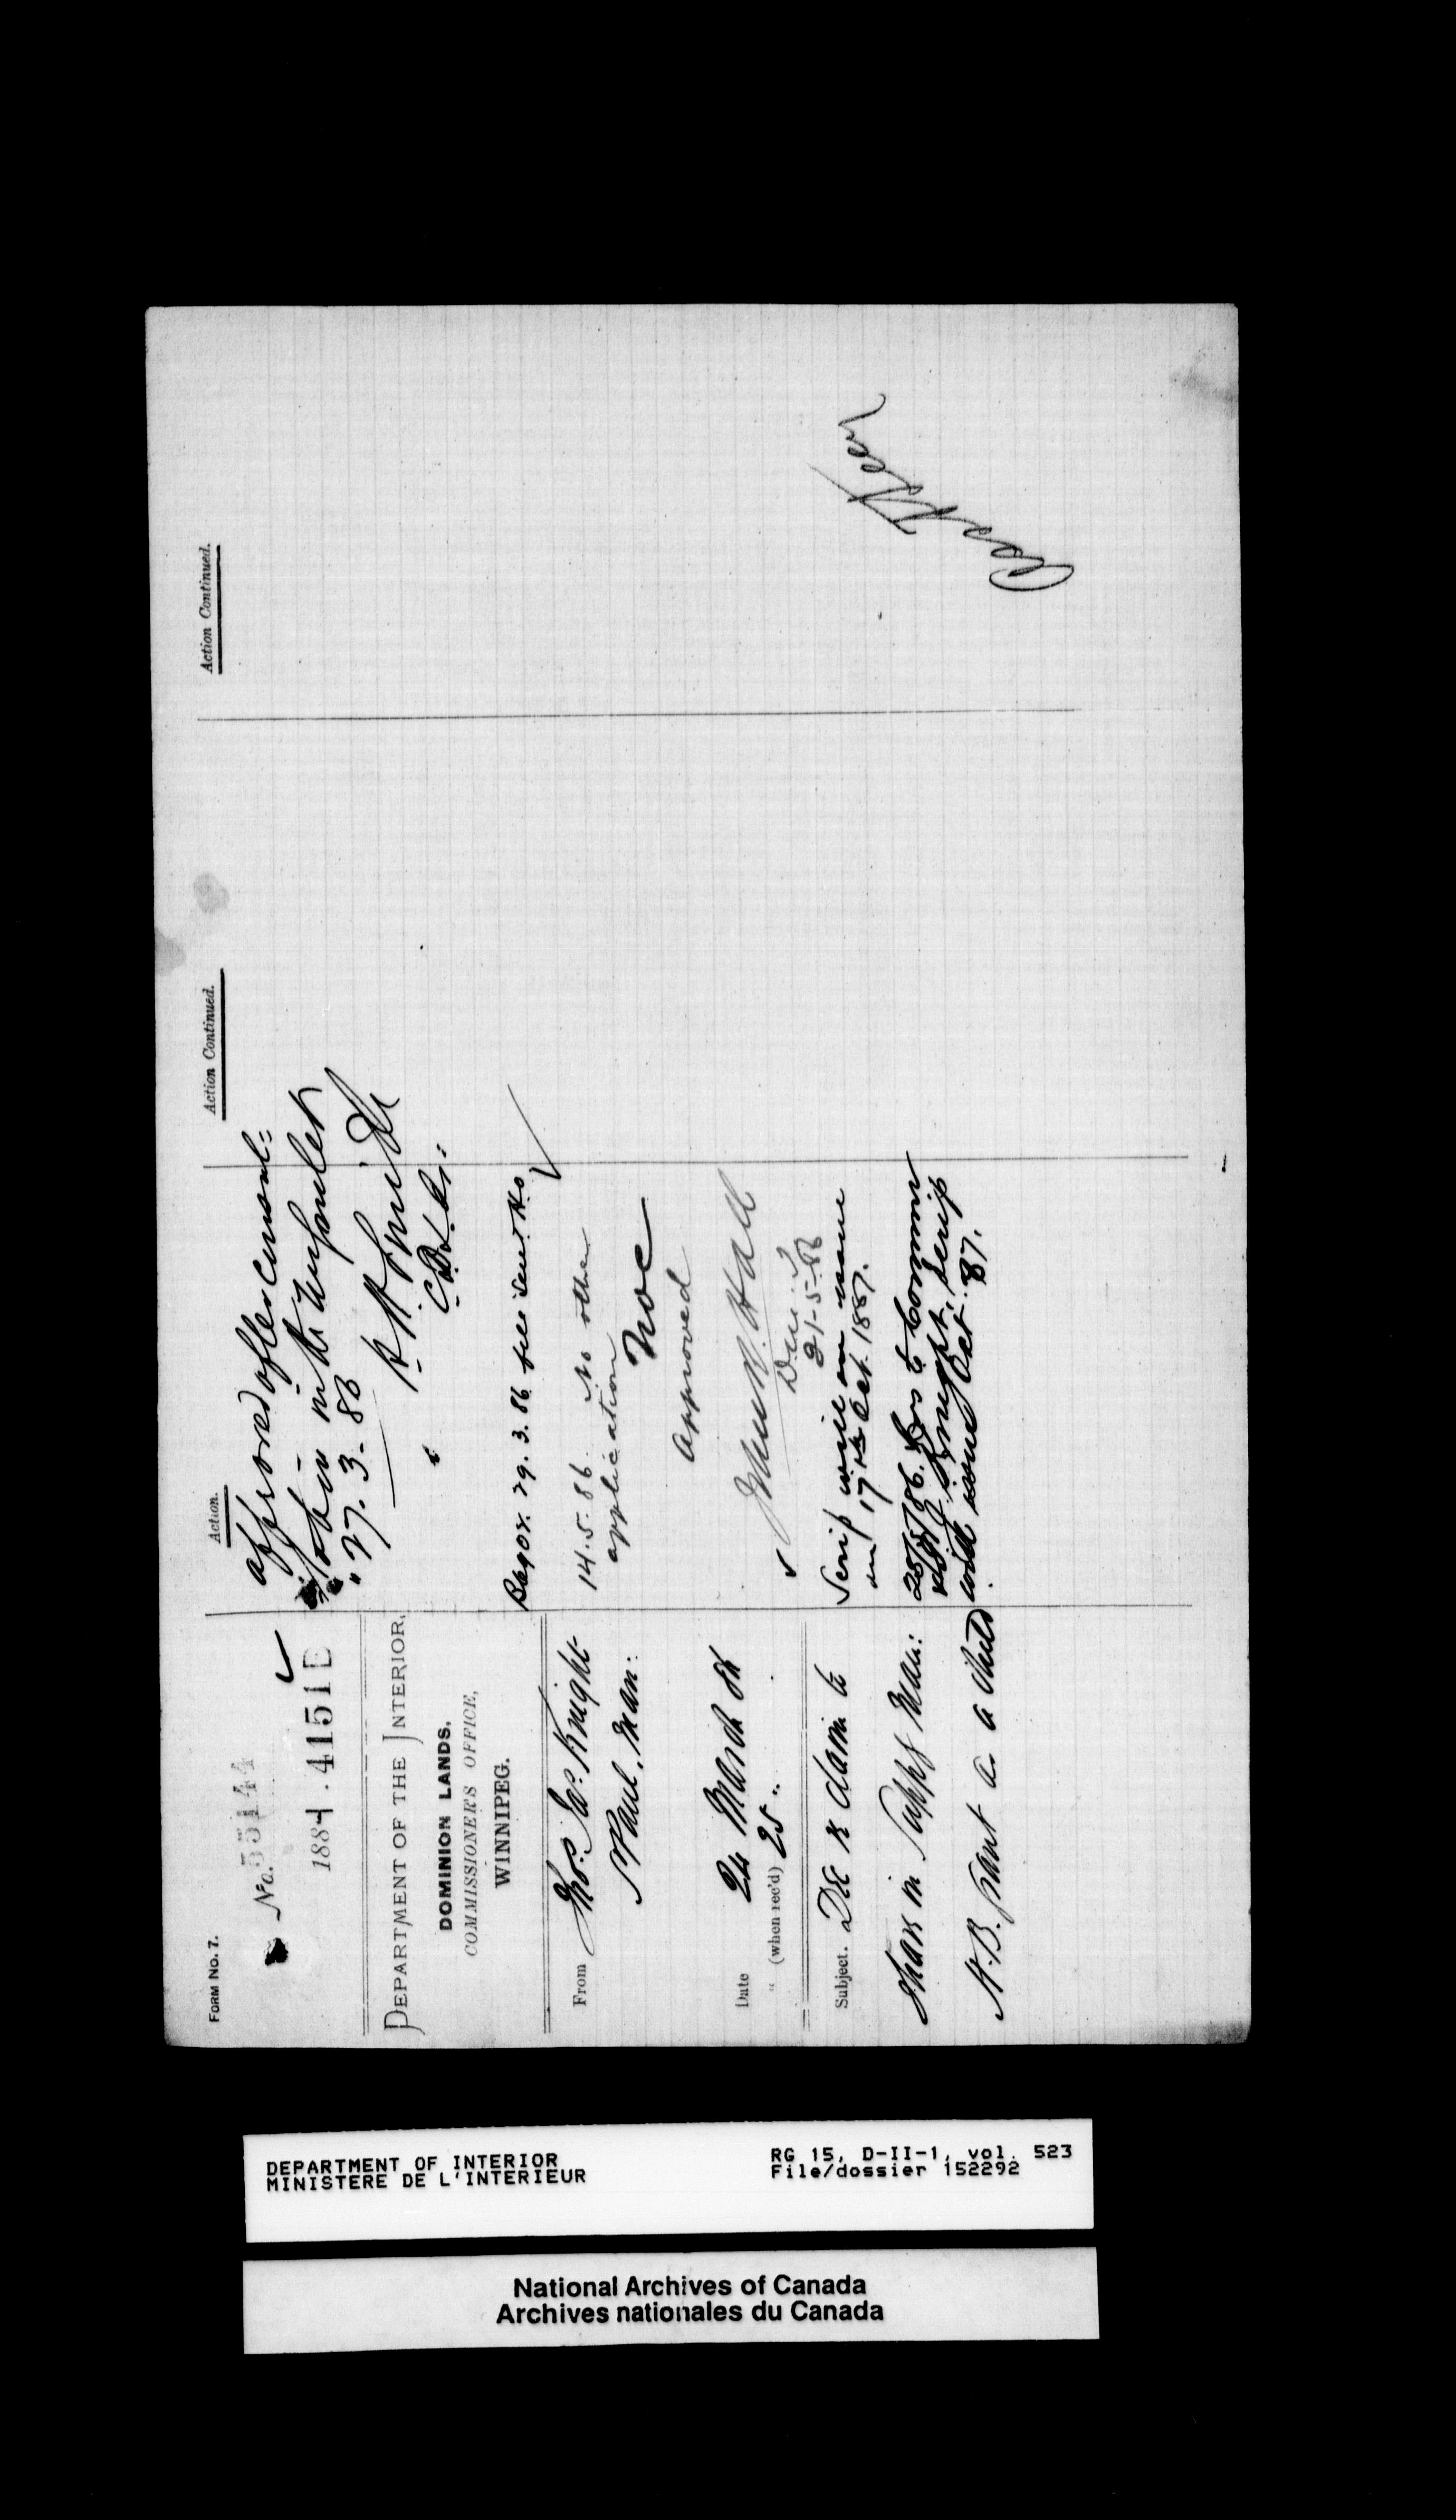 FORM No. 7.
No. 55144
1884. 4151 D
DEPARTMENT OF THE INTERIOR,
DOMINION LANDS,
COMMISSIONER'S OFFICE,
WINNIPEG.
From Thos. Jas. Knight
St Paul, Man:
Date 24 March
" (when rec'd) 25 "
Subject. Dec re claim to
share in Supply Man:
H.B. grant as a child
Action.
approved after consul=
in the
" 27. 3. 86
H. H. Smith
C. D. L.
29. 3. 86 file sent H.O.
14. 5. 86 No other
application
NOC
Approved
Hall
21-5-86
Scrip will issue
on 17th Oct. 1887.
25/5/86. to Commr
Knight, Scrip
will issue Oct. 87.
Action Continued.
Action Continued.
DEPARTMENT OF INTERIOR
MINISTERE DE L'INTERIEUR
RG 15, D-II-1, vol. 523
File/dossier 152292
National Archives of Canada
Archives nationales du Canada